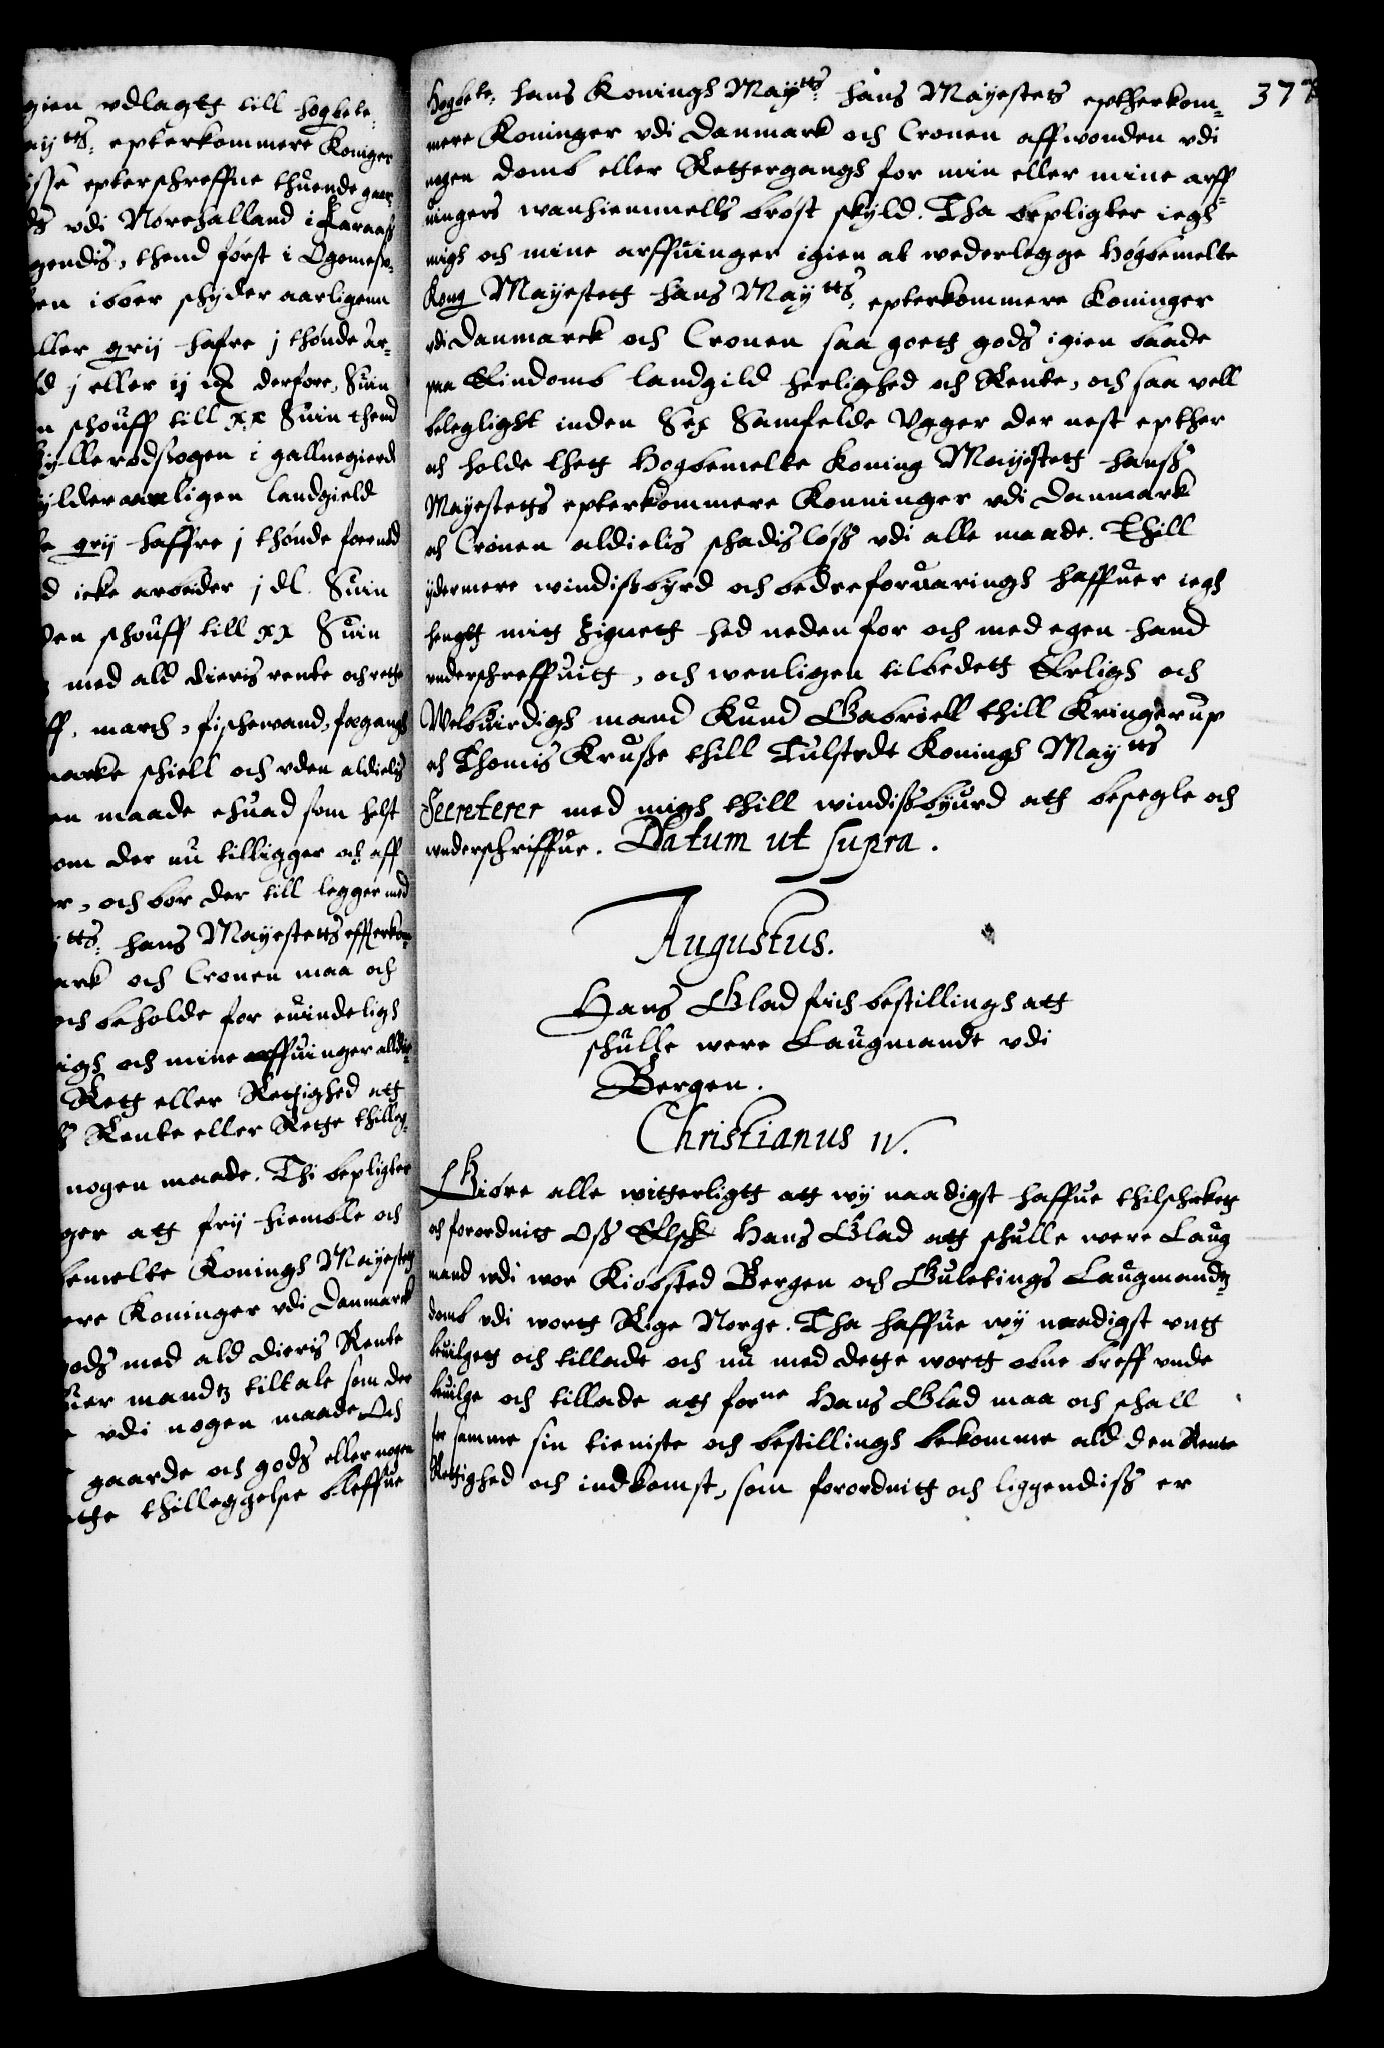 gien vdlagtt till høgbete
aytts: epterkommere Koniger
epterschreffne thuende gaar
vdi Nørehalland i Faraaß
gendis, thend først i
en iboer schylder aarligenn
ller grij hafre j thønde ar-
d j eller ij derfore, Suin
n schouff till xx Suin thend
yllerødsogen i gallnegierd
ylder aarligen landgield
grij haffre j thønde forendd
d icke arbeider j dl. Suin
den schouff till xx Suin
med ald dieris rente och rette
ff, march, fischewand, fægangh
marke schiell och vden aldielis
en maade ehuad som helst
om der nu tilligger och aff
r, och bør der till legger med
tts: hans Mayestetts effterkom-
ark och Cronen maa och
och beholde for euindeligh
igh och mine arffuinger alldie-
Rett eller Rettighed att
Rente eller Rette thilleg-
nogen maade. Thi bepligter
ger att frij hiemble och
bemelte Konings Mayestet
ere Koninger vdi Danmarck
gods med ald dieris Rente
uer mandtz tiltale som der
vdi nogen maade Och
gaarde och gods eller nogen
ette thilleggelse bleffue
37
Høgbete: hans Konings Maytts: hans Mayestets eptherkom-
mere Koninger vdi Danmark och Cronen affwonden vdi
nogen domb eller Rettergangh for min eller mine arff-
uingers wanhiemmells brøst skyld. Tha bepligter iegh
migh och mine arffuinger igien at wederlegge Høgbemelte
Kong Mayestett hans Maytts: epterkommere Koninger
vdi Danmarck och Cronen saa gott gods igien baade
paa Eindomb landgild herlighed och Rente, och saa vell
beleglight inden Sex Samfelde Vgger der nest epther
och holde thett Høgbemelte Koning Mayestett hanß
Mayestetts epterkommere Konninger vdi Danmark
och Cronen aldielis schadisløß vdi alle maade. Thill
ydermere windißbyrd och bedre foruaringh haffuer iegh
hengtt mitt Zignett hed neden for och med egen hand
vnderschreffuitt, och wenligen tilbedett Erligh och
Welbuirdigh mand Knud Gabriell thill Kringerup
och Thomis Kruße thill Tulstedt Konings Maytts
Secreterer med migh thill windißbyurd att besegle och
wnderschriffue. Datum ut supra.
Augustus.
Hans Glad fich bestillingh att
schulle were Laugmandt vdi
Bergen.
Christianus IV.
Giøre alle witterligtt att wij naadigst haffue thilschicket
och forordnitt Oß Elsk Hans Glad att schulle were Laug
mand vdi wor Kiøbsted Bergen och Guletings Laugmandtz-
domb vdi wortt Rige Norge. Tha haffue wij naadigst vntt
beuilgett och tilladt och nu med dette wortt obne breff vnde
beuilge och tillade att forne Hans Glad maa och schall
for samme sin tieniste och bestillingh bekomme ald den Rente
Rettighed och indkomst, som forordnitt och liggendiß er